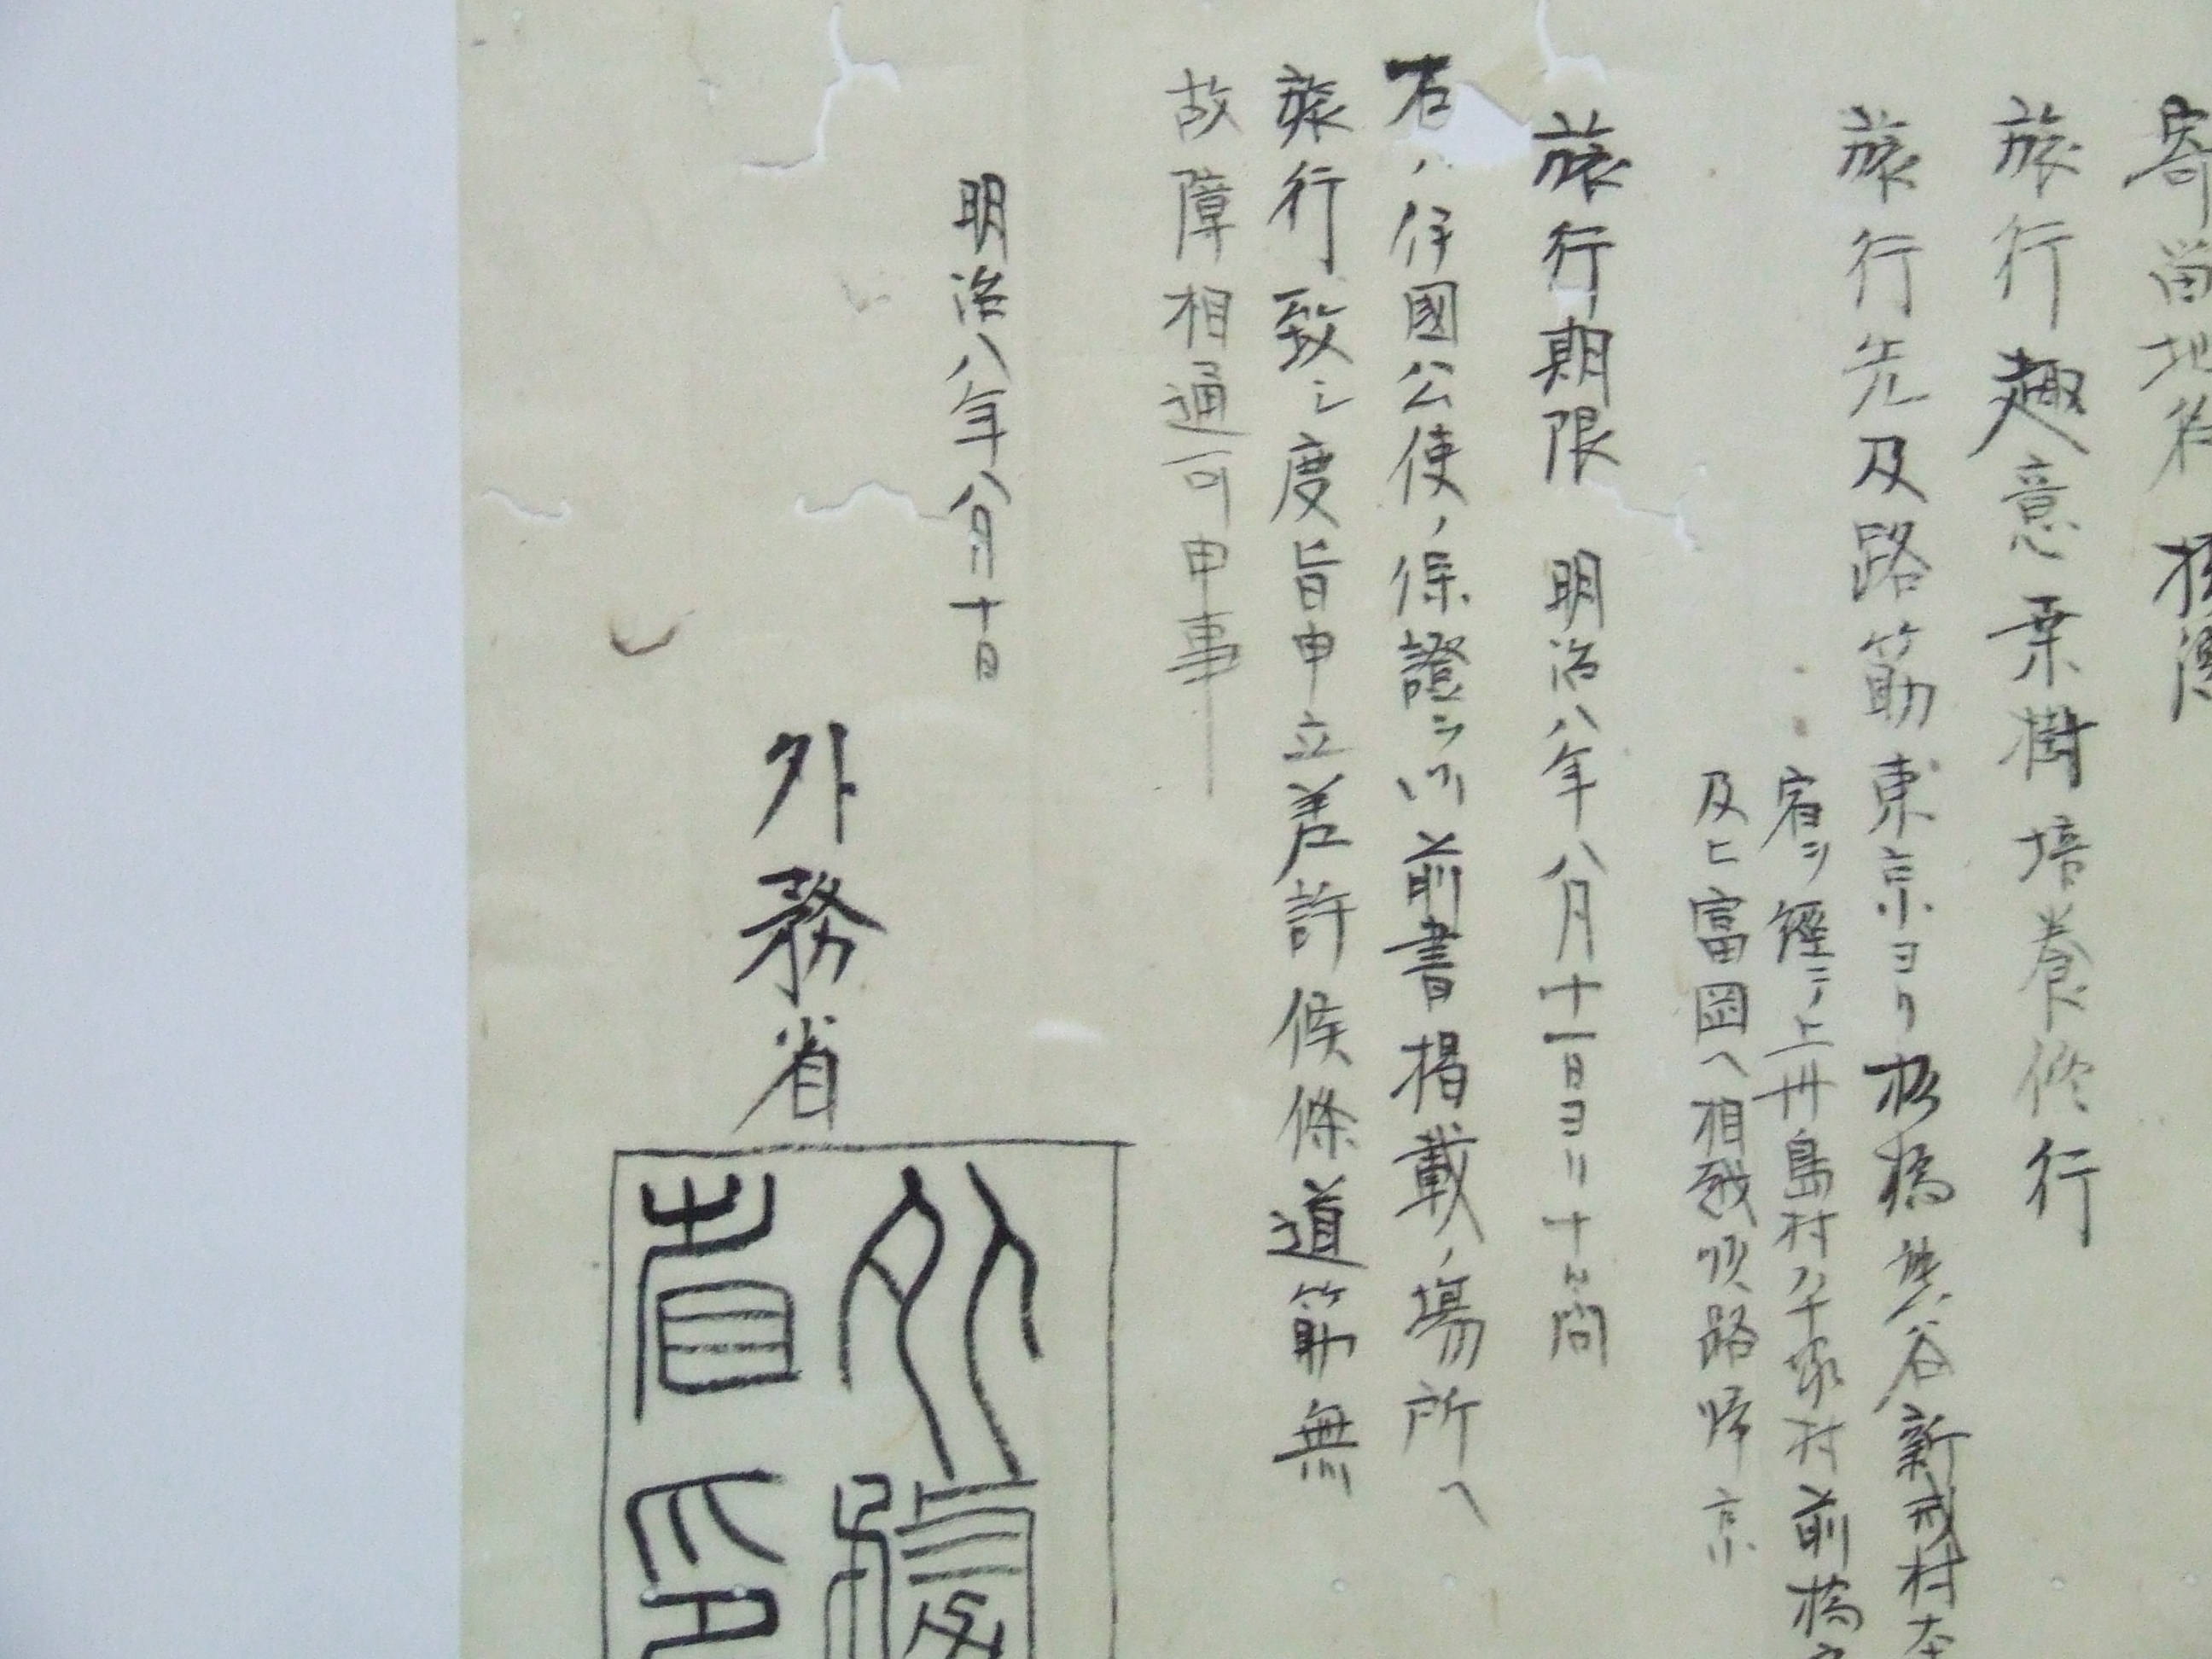 寄留地名 横濱
旅行趣意 桑樹培養修行
旅行先及路筋 東京ヨリ板橋熊谷新戒村
宿ヲ経テ上州島村八斗島村前橋
及ヒ富岡ヘ相越順路帰京
旅行期限 明治八年八月十一日ヨリ五十日間
右ノ伊國公使ノ保證ヲ以前書掲載ノ場所ヘ
旅行致シ度旨申立差許候條道筋無
故障相通可申事
明治八年八月十日
外務省
外務
省印